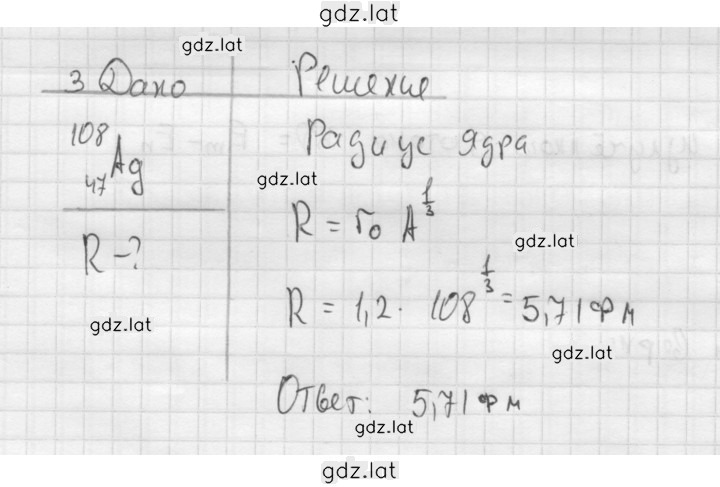 gdz.lat
gdz.lat
3 Дано
Решение
¹⁰⁸₄₇Ag
Радиус ядра
gdz.lat
R = r₀ A^{1/3}
R - ?
gdz.lat
R = 1,2 · 108^{1/3} = 5,71 фм
gdz.lat
gdz.lat
Ответ: 5,71 фм
gdz.lat
gdz.lat